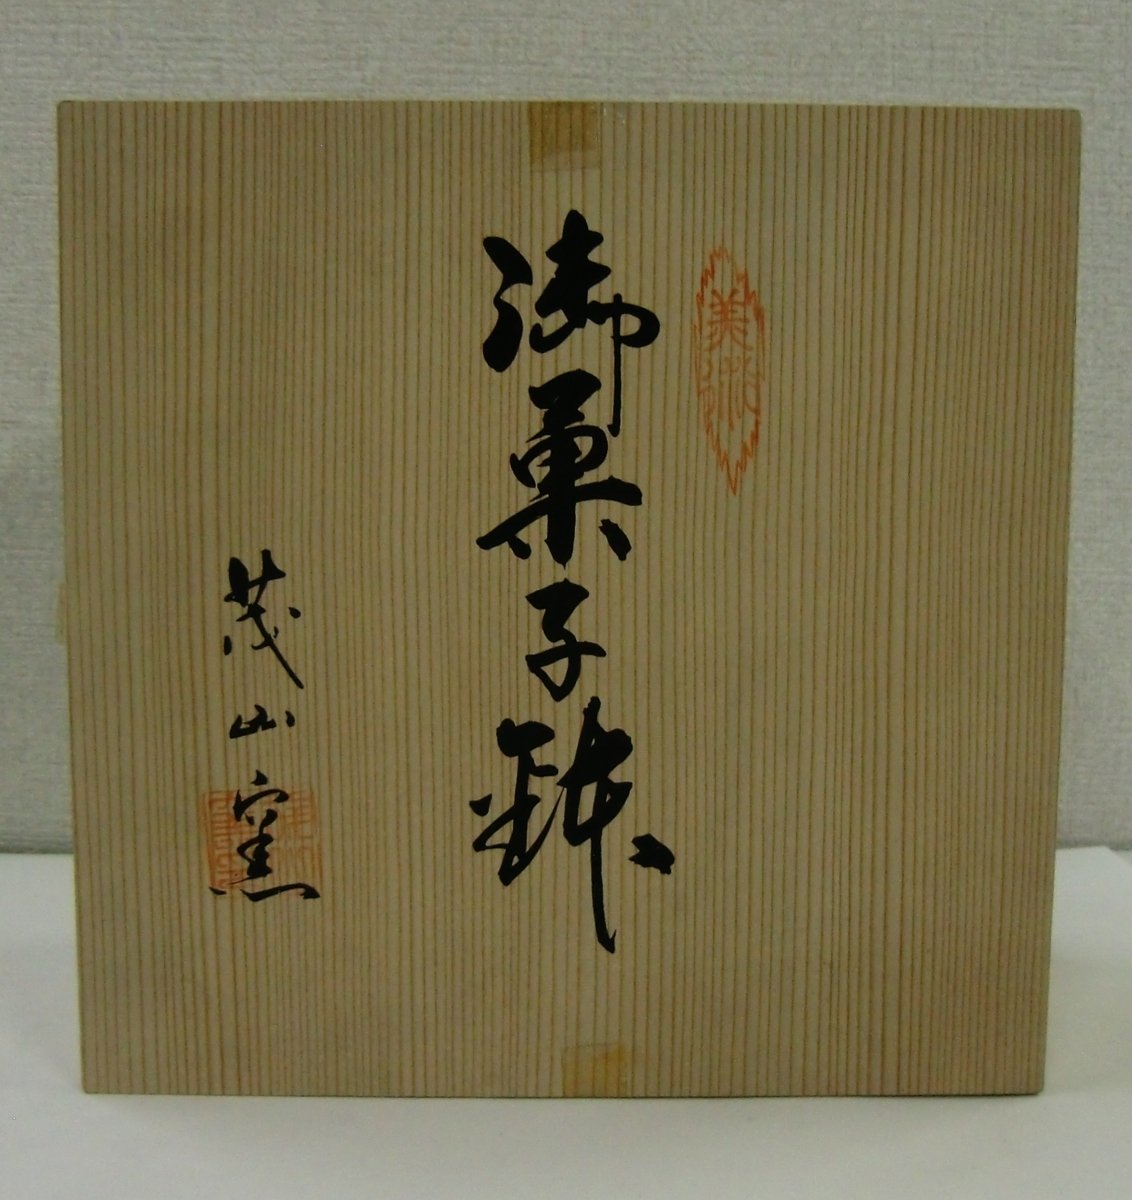 美術
御菓子鉢
茂山窯